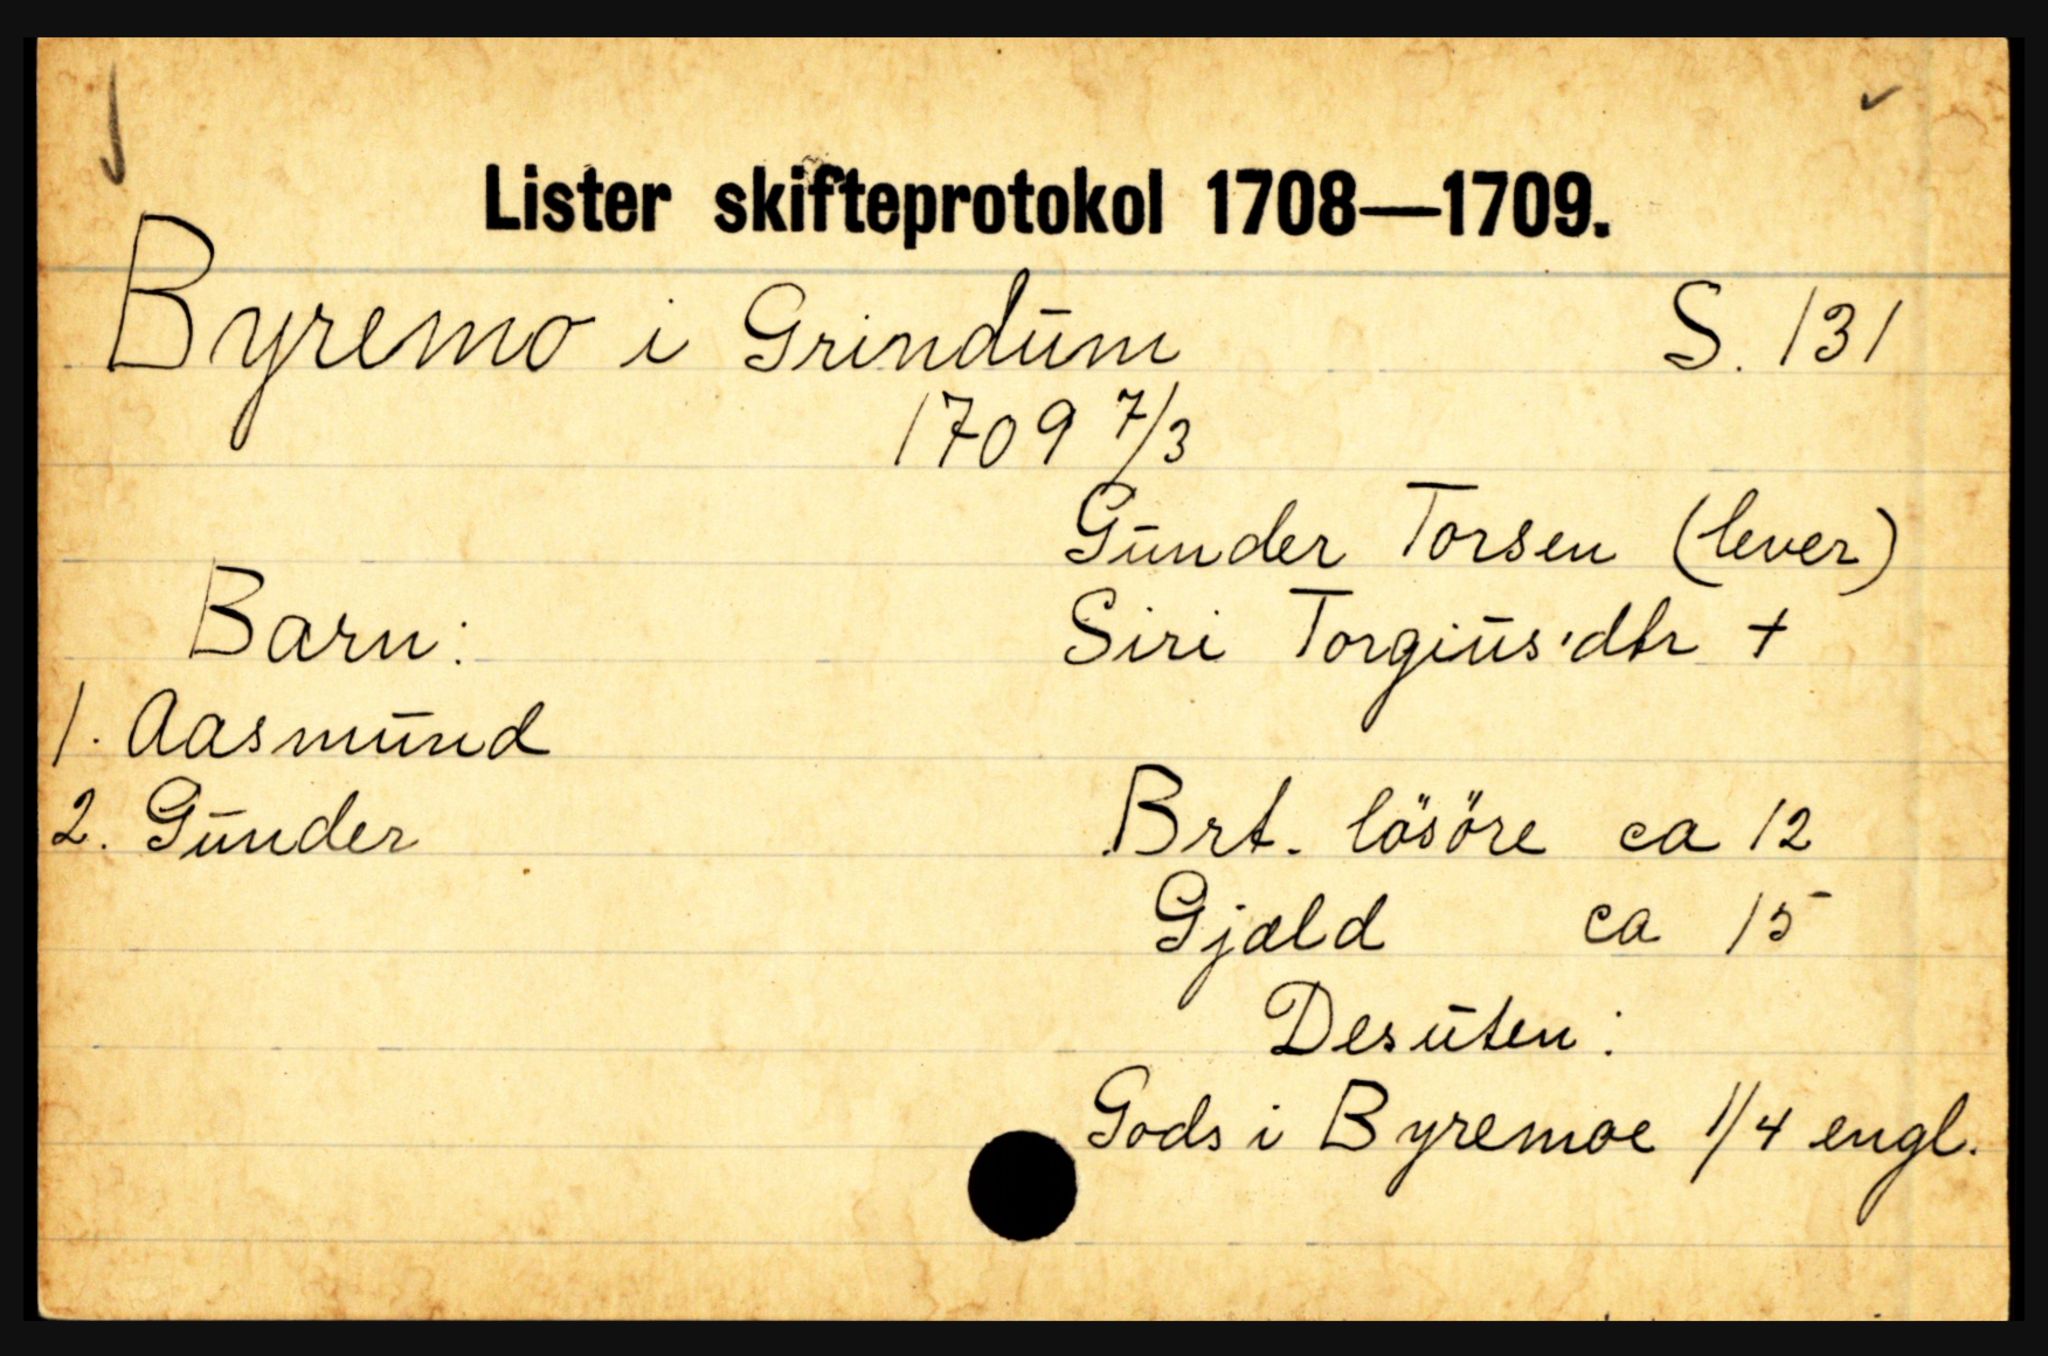 Lister skifteprotokol 1708—1709.
Byremo i Grindum S. 131
1709 7/3
Gunder Torsen (lever)
Barn: Siri Torgius'dtr +
1. Aasmund
2. Gunder Brt. lösöre ca 12
Gjæld ca 15
Desuten:
Gods i Byremoe 1/4 engl.